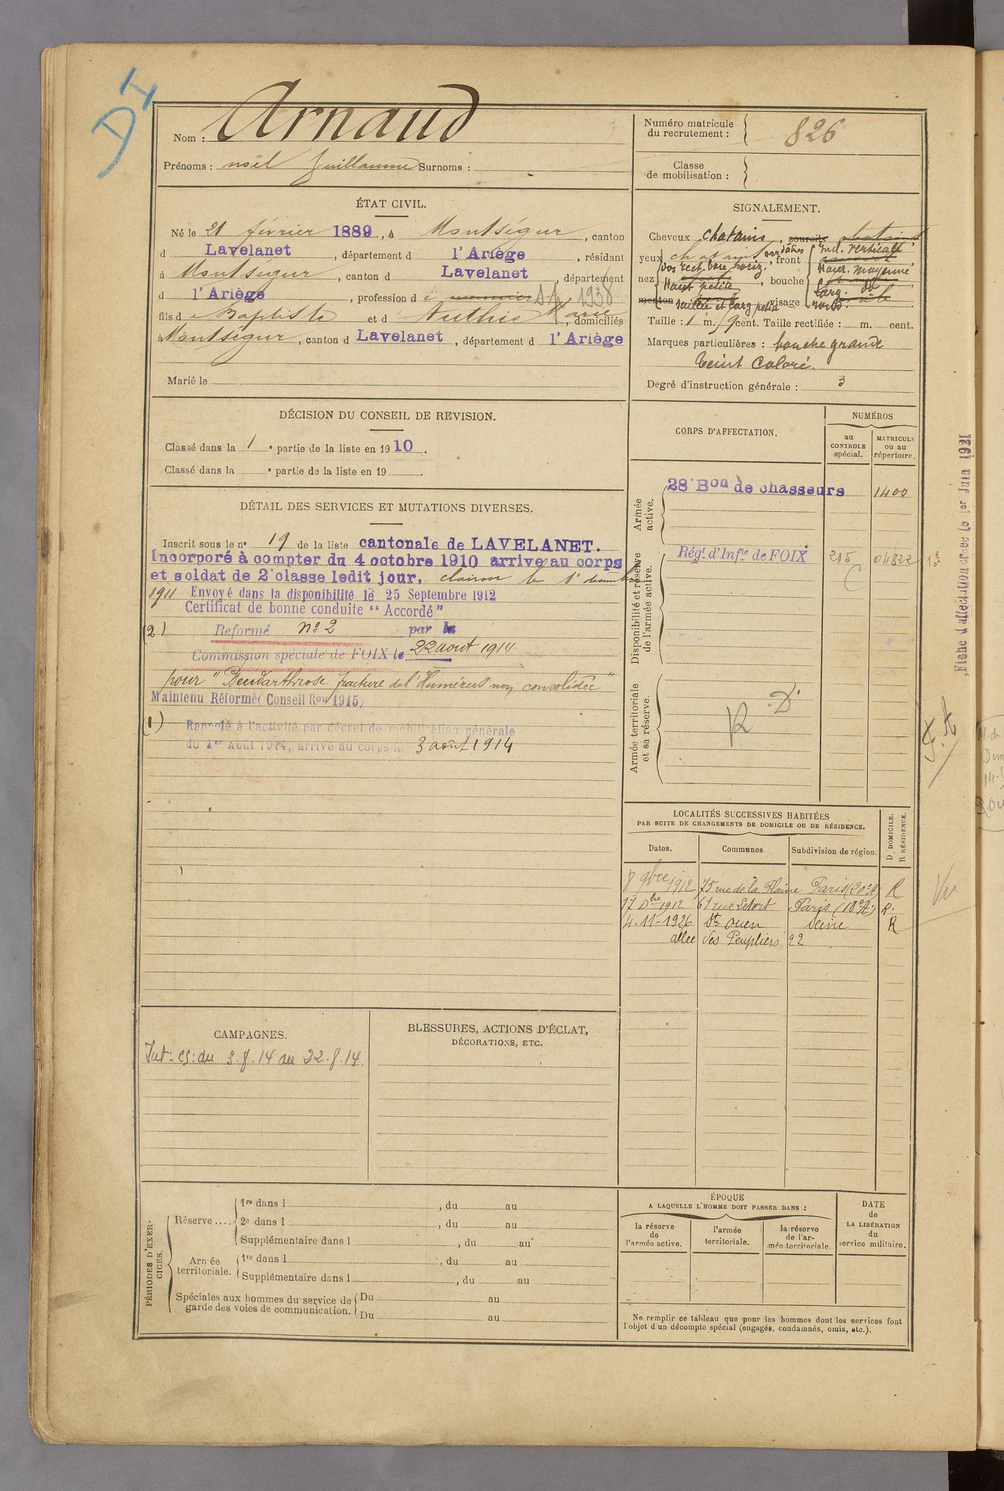 DI
Nom : Arnaud
Prénoms : noël Guillaume Surnoms :
Numéro matricule du recrutement : 826
Classe de mobilisation :
ÉTAT CIVIL.
Né le 21 février 1889, à Montségur, canton
d Lavelanet, département d l'Ariège, résidant
à Montségur, canton d Lavelanet département
d l'Ariège, profession d
fils d e Baptiste et d Authié Marie, domiciliés
à Montségur, canton d Lavelanet, département d l'Ariège
Marié le
SIGNALEMENT.
Cheveux chatains, sourcils chatains
yeux chatains front incl. verticale
nez dos rect. base horiz. bouche Haut. moyenne
Haut petite Larg. do
menton Saillie et Larg petite visage rond.
Taille : 1 m. cent. Taille rectifiée : m. cent.
Marques particulières : bouche grande
teint coloré.
Degré d'instruction générale : 3
DÉCISION DU CONSEIL DE REVISION.
Classé dans la 1 e partie de la liste en 1910.
Classé dans la e partie de la liste en 19 .
CORPS D'AFFECTATION.
NUMÉROS
au CONTROLE spécial.
MATRICULE ou au répertoire.
Armée active.
28e Bon de chasseurs 1400
Disponibilité et réserve de l'armée active.
Régt d'Infie de FOIX 215 04822
Armée territoriale et sa réserve.
R D.
Fiche d'affectation créée le 1er Juin 1921
F. A
DÉTAIL DES SERVICES ET MUTATIONS DIVERSES.
Inscrit sous le n° 19 de la liste cantonale de LAVELANET.
Incorporé à compter du 4 octobre 1910 arrivé au corps
et soldat de 2e classe ledit jour, clairon le
1911 Envoyé dans la disponibilité le 25 Septembre 1912
Certificat de bonne conduite "Accordé"
(2) Réformé n° 2 par la
Commission spéciale de FOIX le 22 aout 1914
pour "Pseudarthrose fracture de l'Humérus non consolidée"
Maintenu Réformé (Conseil Ron 1915)
(1) Rappelé à l'activité par décret de mobilisation générale
du 1er Août 1914, arrivé au corps le 3 août 1914
LOCALITÉS SUCCESSIVES HABITÉES
PAR SUITE DE CHANGEMENTS DE DOMICILE OU DE RÉSIDENCE.
Dates. Communes Subdivision de région. D DOMICILE. R RÉSIDENCE.
8 9bre 1912 75 rue de la Plaine Paris (20e A) R
17 Dbre 1912 61 rue Letort Paris (18e A) R.
4-11-1926 St Ouen Seine R
allée des Peupliers 22
CAMPAGNES.
Int: cs: du 3.8.14 au 22.8.14.
BLESSURES, ACTIONS D'ÉCLAT,
DÉCORATIONS, ETC.
PÉRIODES D'EXERCICES.
Réserve .... 1re dans l , du au
2e dans l , du au
Supplémentaire dans l , du au
Armée territoriale. 1re dans l , du au
Supplémentaire dans l , du au
Spéciales aux hommes du service de garde des voies de communication. Du au
Du au
ÉPOQUE
A LAQUELLE L'HOMME DOIT PASSER DANS :
la réserve de l'armée active.
l'armée territoriale.
la réserve de l'armée territoriale.
DATE de LA LIBÉRATION du service militaire.
Ne remplir ce tableau que pour les hommes dont les services font
l'objet d'un décompte spécial (engagés, condamnés, omis, etc.).